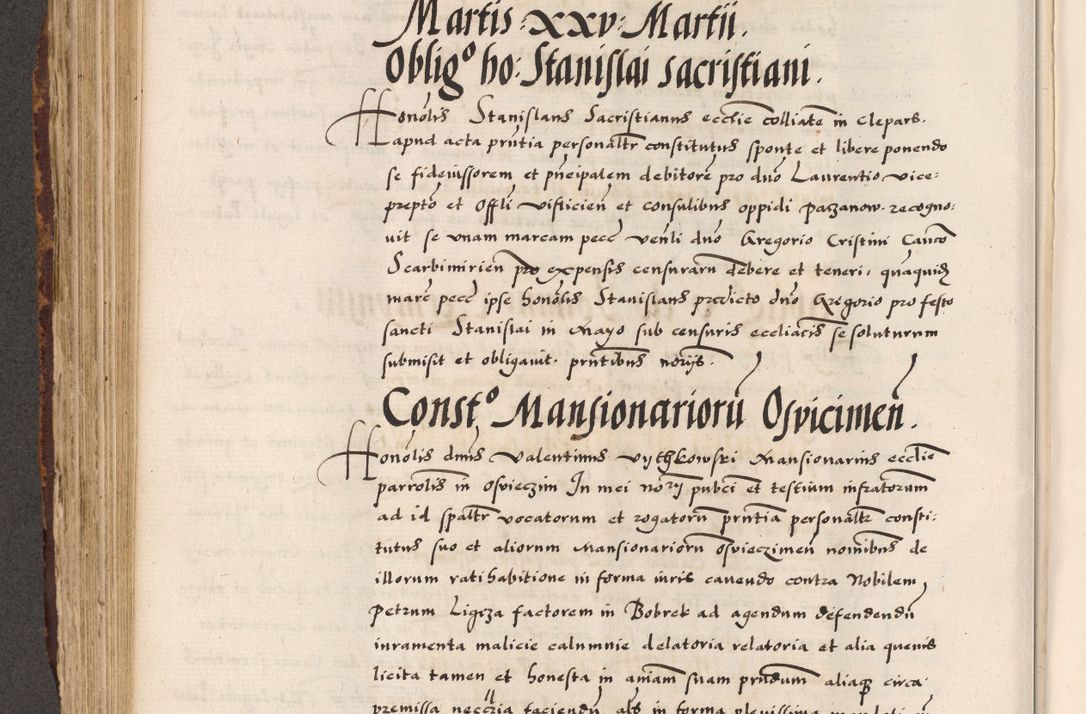 Martis · xxv · Martii .
Obligo ho: Stanislai sacristiani .
Honolis Stanislaus Sacristianus ecclie colliate in Clepars.
apud acta pntia personaltr constitutus sponte et libere ponendo
se fideiussorem et pncipalem debitore pro dno Laurentio vice-
prepto et Offli visticien et consulibus oppidi paczanow. recogno:
uit se unam marcam pecc venli dno Gregorio Cristini Canco
Scarbimirien pro expensis censuraru debere et teneri, quaquid
marc pecc ipse honolis Stanislaus predicto dno Gregorio pro festo
sancti Stanislai in Mayo sub censuris eccliacis se soluturum
submisit et obligauit. pntibus noriis .
Consto Mansionarioru Osvicimen .
Honolis dnus Valentinus Vythkowski Mansionarius ecclie
parrolis in Osvieczim In mei norii publci et testium infratorum
ad id spaltr vocatorum et rogatoru pntia personaltr consti:
tutus suo et aliorum Mansionarioru Osvieczimen nomibus de
illorum ratihabitione in forma iuris cauendo contra Nobilem
Petrum Ligęza factorem in Bobrek ad agendum defendendu
iuramenta malicie calumnie delatoria relatoria et alia queuis
licita tamen et honesta in aniam suam prndum aliaqs circa
premissa neccria faciendu als in forma plenissima mandati